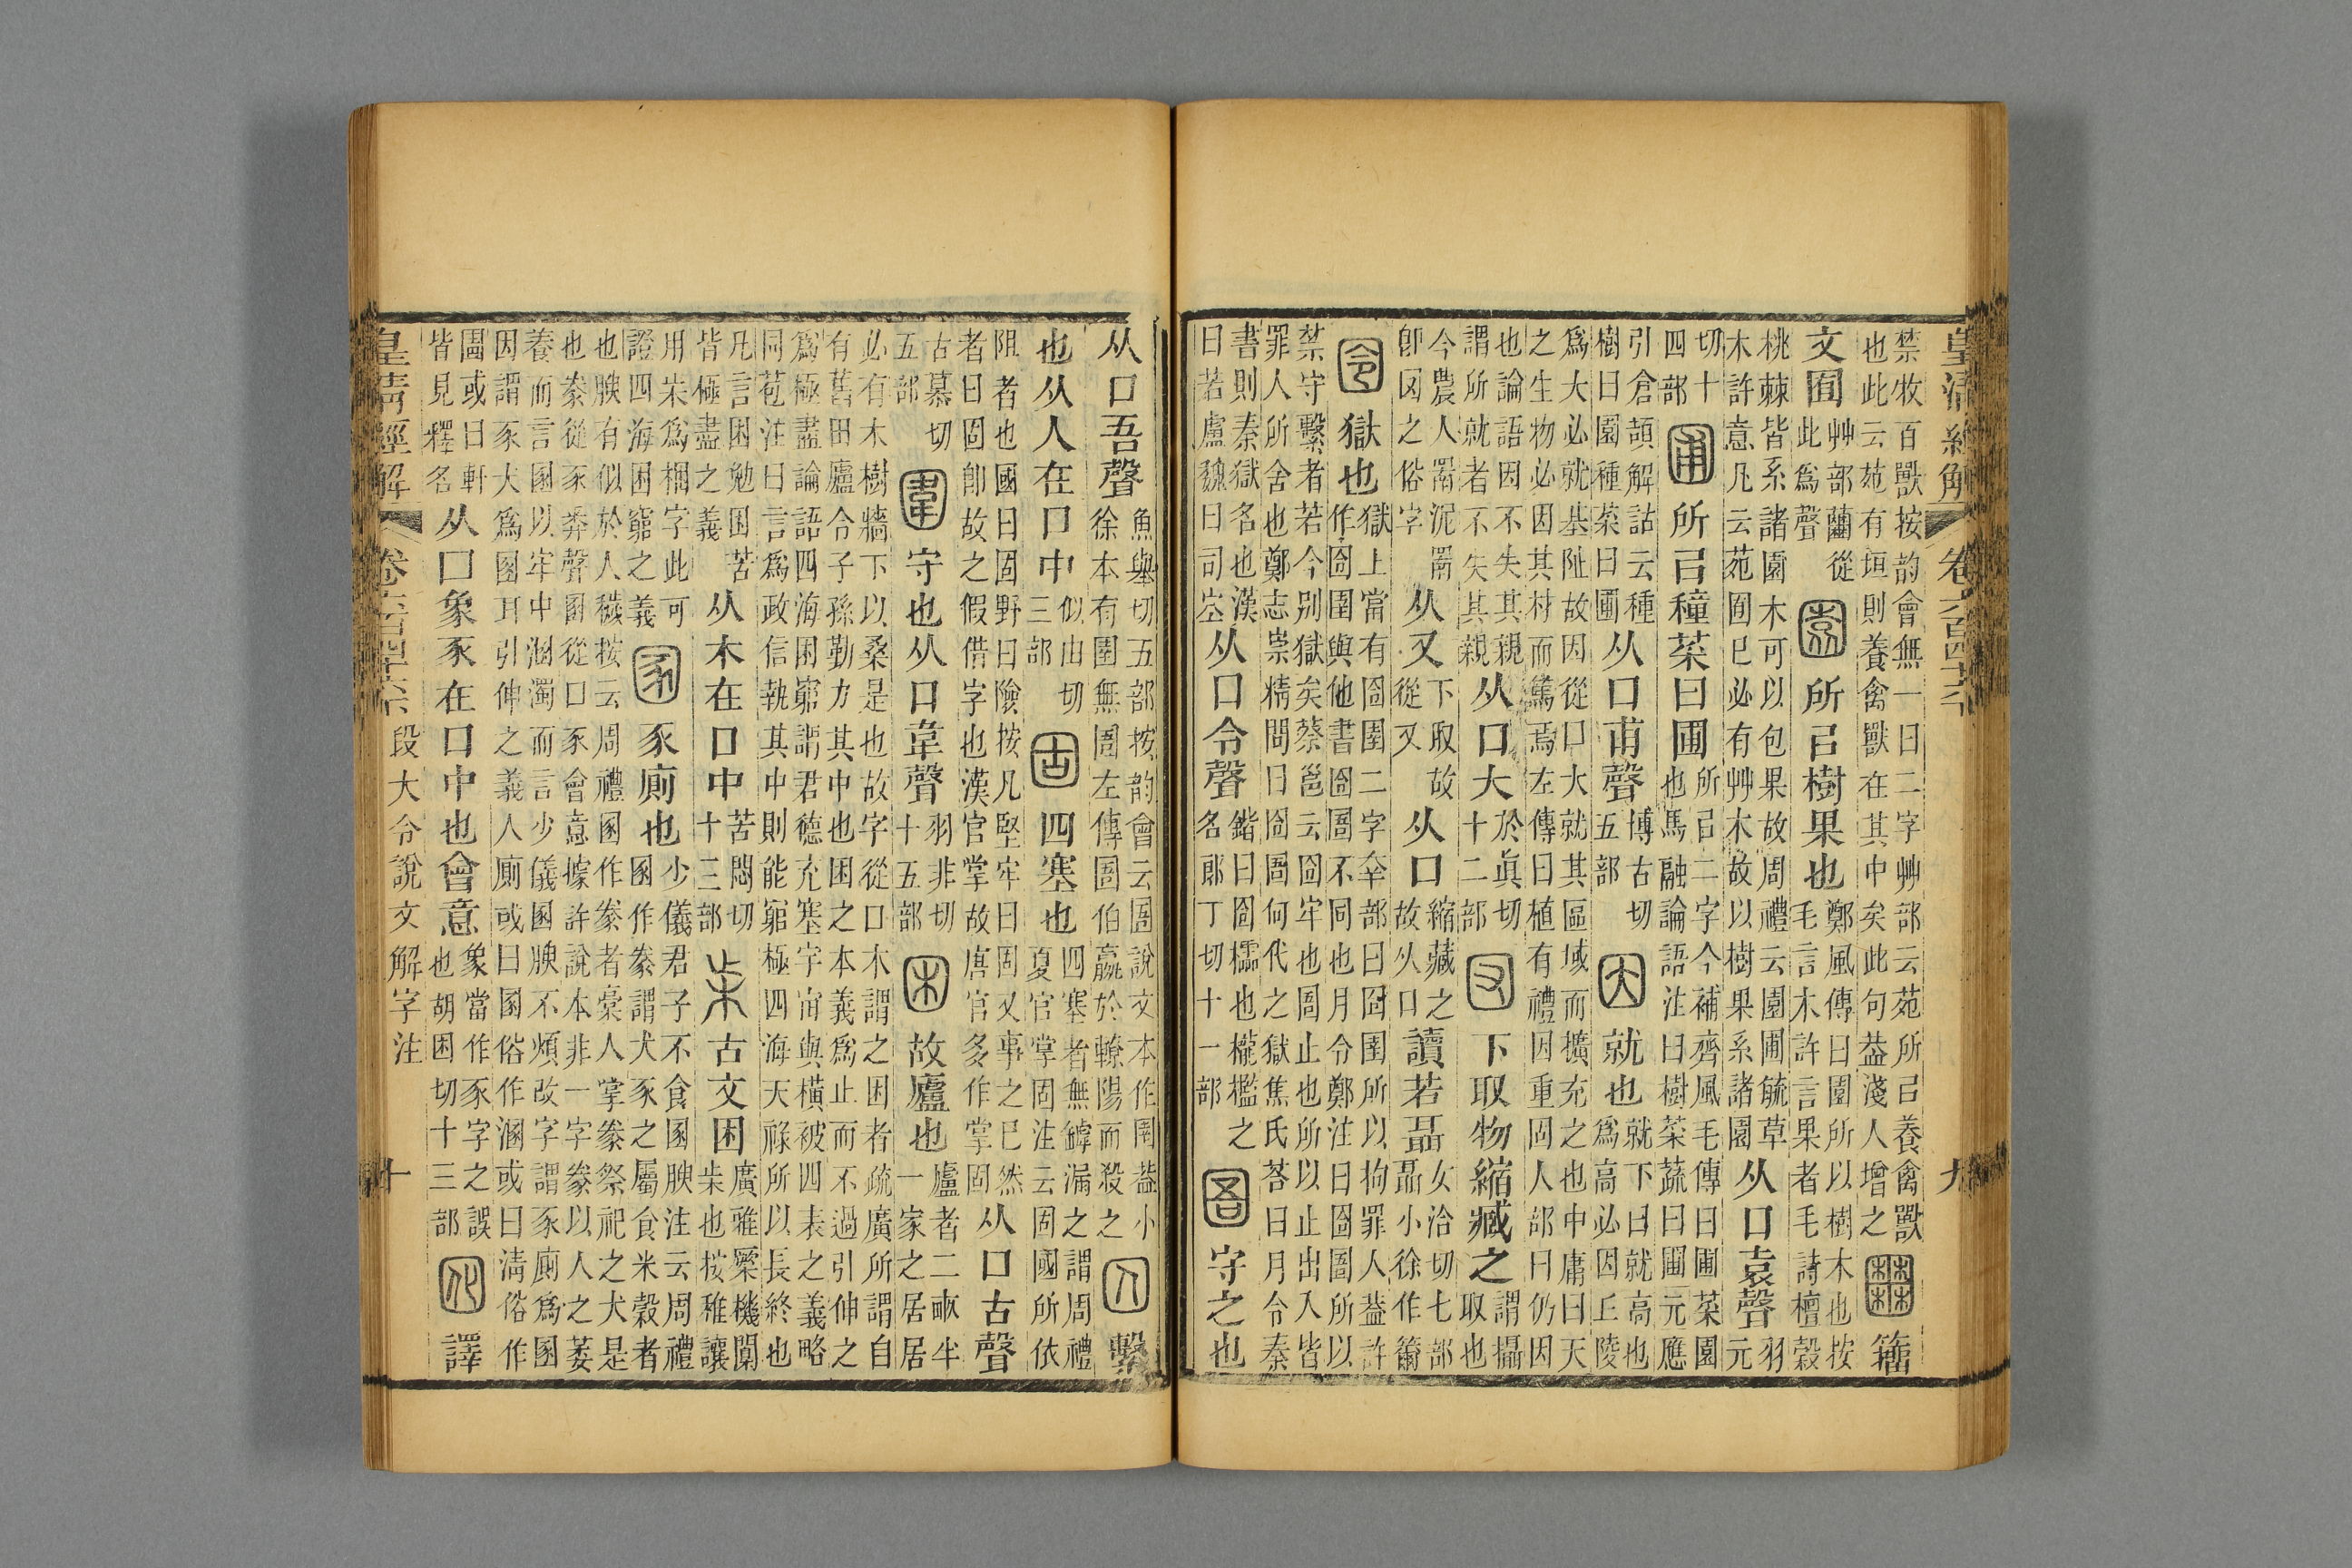 皇清經解 卷六百四十六 九
禁牧百獸按韵會無一曰二字艸部云苑所㠯養禽獸
也此云苑有垣則養禽獸在其中矣此句葢淺人增之
𡈷籒
文囿
艸部䕌從
此爲聲
園所㠯樹果也
鄭風傳曰園所以樹木也按
毛言木許言果者毛詩檀穀
桃棘皆系諸園木可以包果故周禮云園圃毓草
木許意凡云苑囿巳必有艸木故以樹果系諸園
从口袁聲
羽
元
切十
四部
圃所㠯種菜曰圃
所㠯二字今補齊風毛傳曰圃菜園
也馬融論語注曰樹菜蔬曰圃元應
引倉頡解詁云種
樹曰園種菜曰圃
从口甫聲
博古切
五部
因就也
就下曰就高也
爲高必因丘陵
爲大必就基阯故因從口大就其區域而擴充之也中庸曰天
之生物必因其材而篤焉左傳曰植有禮因重固人部曰仍因
也論語因不失其親
謂所就者不失其親
从口大
於眞切
十二部
囡下取物縮臧之
謂攝
取也
今農人罱泥罱
卽囡之俗字
从又
下取故
從又
从口
縮藏之
故从口
讀若聶
女洽切七部
聶小徐作籋
囹獄也
獄上當有囹圉二字㚔部曰囹圉所以拘罪人葢許
作囹圉與他書囹圄不同也月令鄭注曰囹圄所以
禁守繫者若今别獄矣蔡邕云囹牢也圄止也所以止出入皆
罪人所舍也鄭志崇精問曰囹圄何代之獄焦氏荅曰月令秦
書則秦獄名也漢
曰若盧魏曰司空
从口令聲
鍇曰囹櫺也櫳檻之
名郎丁切十一部
圄守之也
从口吾聲
魚舉切五部按韵會云圄說文本作圉葢小
徐本有圉無圄左傳圄伯嬴於轑陽而殺之
囚繫
也从人在口中
似由切
三部
固四塞也
四塞者無罅漏之謂周禮
夏官掌固注云固國所依
阻者也國曰固野曰險按凡堅牢曰固又事之已然
者曰固卽故之假借字也漢官掌故唐官多作掌固
从口古聲
古慕切
五部
圍守也从口韋聲
羽非切
十五部
困故廬也
廬者二畝半
一家之居居
必有木樹牆下以桑是也故字從口木謂之困者疏廣所謂自
有舊田廬令子孫勤力其中也困之本義爲止而不過引伸之
爲極盡論語四海困窮謂君德充塞宇宙與橫被四表之義略
同苞注曰言爲政信執其中則能窮極四海天祿所以長終也
凡言困勉困苦
皆極盡之義
从木在口中
苦悶切
十三部
𣏔古文困
廣雅橜機闑
𣏔也按稚讓
用𣏔爲梱字此可
證四海困窮之義
圂豕廁也
少儀君子不食圂腴注云周禮
圂作豢謂犬豕之屬食米穀者
也腴有似於人穢按云周禮圂作豢者槀人掌豢祭祀之犬是
也豢從豕𢍏聲圂從口豕會意據許說本非一字豢以人之萎
養而言圂以牢中溷濁而言少儀圂腴不煩改字謂豕廁爲圂
因謂豕犬爲圂耳引伸之義人廁或曰圂俗作溷或曰清俗作
圊或曰軒
皆見釋名
从口象豕在口中也會意
象當作豕字之誤
也胡困切十三部
囮譯
皇清經解 卷六百四十六 段大令說文解字注 十